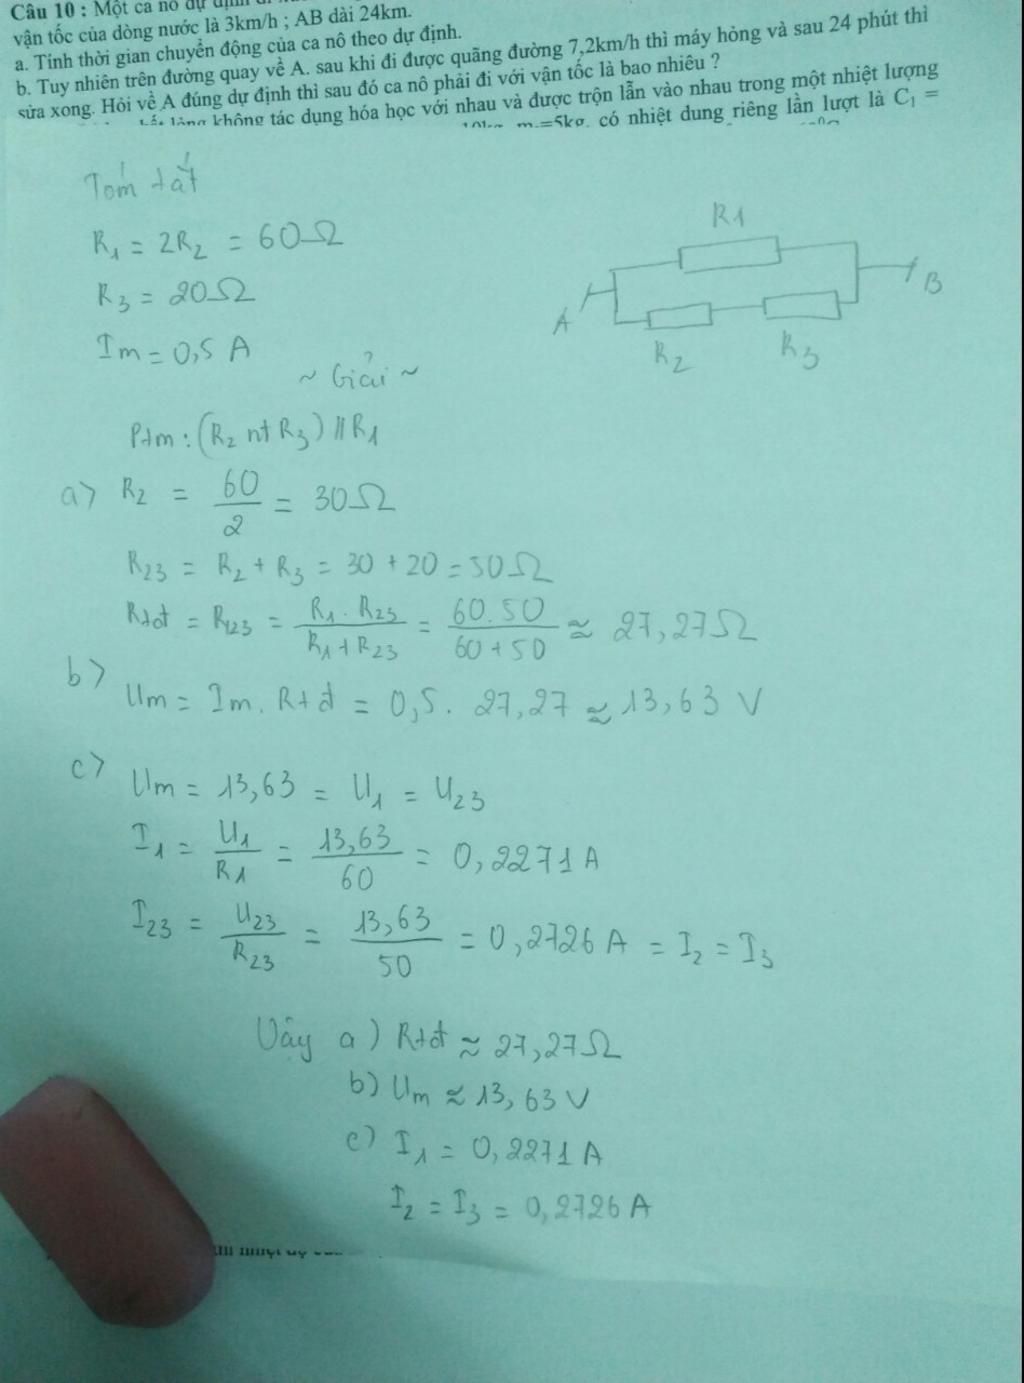 Câu 10 : Một ca nô dự định
vận tốc của dòng nước là 3km/h ; AB dài 24km.
a. Tính thời gian chuyển động của ca nô theo dự định.
b. Tuy nhiên trên đường quay về A. sau khi đi được quãng đường 7,2km/h thì máy hỏng và sau 24 phút thì
sửa xong. Hỏi về A đúng dự định thì sau đó ca nô phải đi với vận tốc là bao nhiêu ?
lỏng không tác dụng hóa học với nhau và được trộn lẫn vào nhau trong một nhiệt lượng
=5kg, có nhiệt dung riêng lần lượt là C₁ =
Tóm tắt
R₁ = 2R₂ = 60Ω
R₃ = 20Ω
Im = 0,5 A
R1
A
B
R₂
R₃
~ Giải ~
Ptm : (R₂ nt R₃) // R₁
a> R₂ = 60/2 = 30Ω
R₂₃ = R₂ + R₃ = 30 + 20 = 50Ω
Rtđ = R₁₂₃ = R₁ . R₂₃ / R₁ + R₂₃ = 60.50 / 60 + 50 ≈ 27,27Ω
b> Um = Im. Rtđ = 0,5. 27,27 ≈ 13,63 V
c> Um = 13,63 = U₁ = U₂₃
I₁ = U₁/R₁ = 13,63/60 = 0,2271 A
I₂₃ = U₂₃/R₂₃ = 13,63/50 = 0,2726 A = I₂ = I₃
Vậy a) Rtđ ≈ 27,27Ω
b) Um ≈ 13,63 V
c) I₁ = 0,2271 A
I₂ = I₃ = 0,2726 A